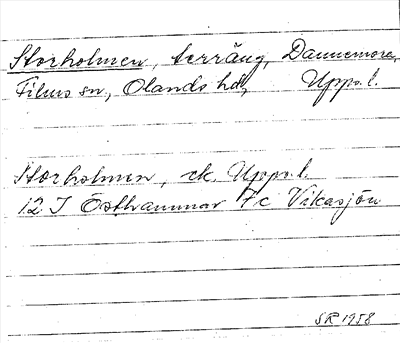 Storholmen, terräng, Dannemora,
Films sn, Olands hd, Upps.l.
Storholmen, ek Upps.l.
12 I Östhammar 7c Vikasjön
SR 1958